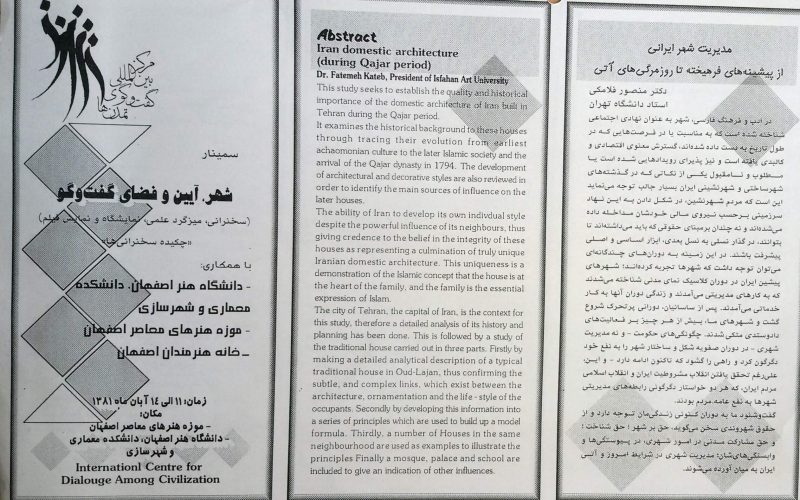 مرکز بین‌المللی گفت‌وگوی تمدن‌ها
سمینار
شهر، آیین و فضای گفت‌وگو
(سخنرانی، میزگرد علمی، نمایشگاه و نمایش فیلم)
«چکیده سخنرانی‌ها»
با همکاری:
- دانشگاه هنر اصفهان، دانشکده
معماری و شهرسازی
- موزه هنرهای معاصر اصفهان
- خانه هنرمندان اصفهان
زمان: ۱۱ الی ۱۴ آبان ماه ۱۳۸۱
مکان:
موزه هنرهای معاصر اصفهان -
- دانشگاه هنر اصفهان، دانشکده معماری
و شهرسازی
Internationl Centre for
Dialouge Among Civilization
Abstract
Iran domestic architecture
(during Qajar period)
Dr. Fatemeh Kateb, President of Isfahan Art University
This study seeks to establish the quality and historical
importance of the domestic architecture of Iran built in
Tehran during the Qajar period.
It examines the historical background to these houses
through tracing their evolution from earliest
achaomonian culture to the later Islamic society and the
arrival of the Qajar dynasty in 1794. The development
of architectural and decorative styles are also reviewed in
order to identify the main sources of influence on the
later houses.
The ability of Iran to develop its own indivdual style
despite the powerful influence of its neighbours, thus
giving credence to the belief in the integrity of these
houses as representing a culmination of truly unique
Iranian domestic architecture. This uniqueness is a
demonstration of the Islamic concept that the house is at
the heart of the family, and the family is the essential
expression of Islam.
The city of Tehran, the capital of Iran, is the context for
this study, therefore a detailed analysis of its history and
planning has been done. This is followed by a study of
the traditional house carried out in three parts. Firstly by
making a detailed analytical description of a typical
traditional house in Oud-Lajan, thus confirming the
subtle, and complex links, which exist between the
architecture, ornamentation and the life - style of the
occupants. Secondly by developing this information into
a series of principles which are used to build up a model
formula. Thirdly, a number of Houses in the same
neighbourhood are used as examples to illustrate the
principles Finally a mosque, palace and school are
included to give an indication of other influences.
مدیریت شهر ایرانی
از پیشینه‌های فرهیخته تا روزمرگی‌های آتی
دکتر منصور فلامکی
استاد دانشگاه تهران
در ادب و فرهنگ فارسی، شهر به عنوان نهادی اجتماعی
شناخته شده است که به مناسبت یا در فرصت‌هایی که در
طول تاریخ به دست داده شده‌اند، گسترش معنوی اقتصادی و
کالبدی یافته است و نیز پذیرای رویدادهایی شده است یا
مطلوب و نامقبول یکی از نکاتی که در گذشته‌های
شهرساختی و شهرنشینی ایران بسیار جالب توجه می‌نماید
این است که مردم شهرنشین، در شکل دادن به این نهاد
سرزمینی برحسب نیروی مالی خودشان مداخله داده
می‌شده‌اند و نه چندان برمبنای حقوقی که باید می‌داشته‌اند تا
بتوانند، در گذار نسلی به نسل بعدی، ابزار اساسی و اصلی
پیشرفت باشند. در این زمینه به دوران‌های چندگانه‌ای
می‌توان توجه داشت که شهرها تجربه کرده‌اند: شهرهای
پیشین ایران در دوران کلاسیک نمای مدنی شناخته می‌شدند
که به کارهای مدیریتی می‌آمدند و زندگی دوران آنها به کار
خدماتی می‌آمدند. پس از ساسانیان، دورانی پرتحرک شروع
گشت و شهرهای ما، بیش از هر چیز بر فعالیت‌های
دادوستدی متکی شدند. چگونگی‌های حکومت - و نه مدیریت
شهری - در دوران صفویه شکل و ساختار شهر را به نفع خود
دگرگون کرد و راهی را گشود که تاکنون ادامه دارد - و این،
علی‌رغم تحقق یافتن انقلاب مشروطیت ایران و انقلاب اسلامی
مردم ایران، که هر دو خواستار دگرگونی رابطه‌های مدیریتی
شهرها به نفع عامه مردم بودند.
گفت‌وشنود ما به دوران کنونی زندگی‌مان توجه دارد و از
حقوق شهروندی سخن می‌گوید. حق بر شهر؛ حق شناخت؛
و حق مشارکت مدنی در امور شهری، در پیوستگی‌ها و
وابستگی‌های‌شان؛ مدیریت شهری در شرایط امروز و آتی
ایران به میان آورده می‌شوند.